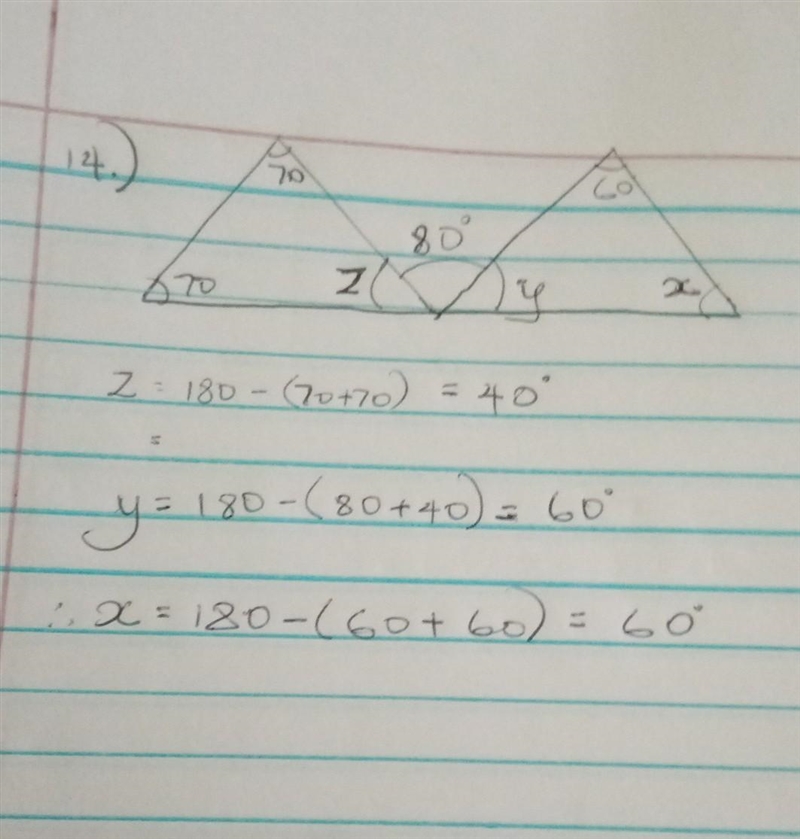 14.)
70
60
80°
70 z y x
z = 180 - (70+70) = 40°
=
y = 180 - (80+40) = 60°
∴ x = 180 - (60+60) = 60°